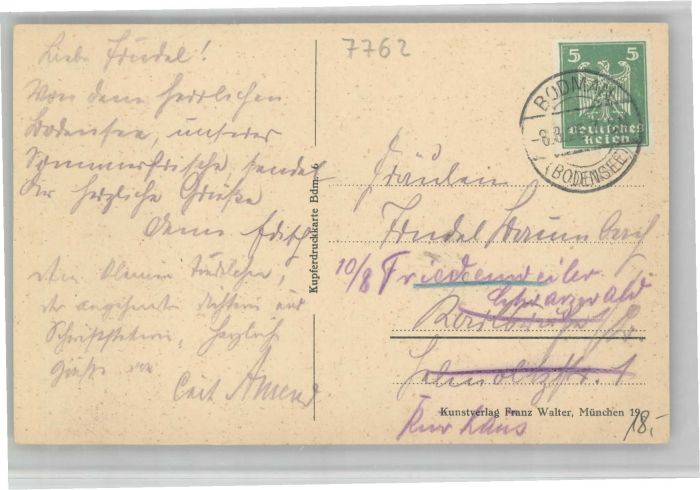 Liebe Friedel!
Von dem herrlichen
Bodensee, unserer
Sommerfrische, sendet
Dir herzliche Grüße
deine
Dem kleinen Friedelchen,
der angehenden Dichterin und
Schriftstellerin, herzliche
Grüße von
Amend
Kupferdruckkarte Bdm. 6
7762
5 5
Deutsches
Reich
BODMAN
(BODENSEE)
Fräulein
Friedel Baumbach
10/8 Friedenweiler
Schwarzwald
Karlsruhe i/B.
Helmholtzstr. 1
Kurhaus
Kunstverlag Franz Walter, München 19
18.-